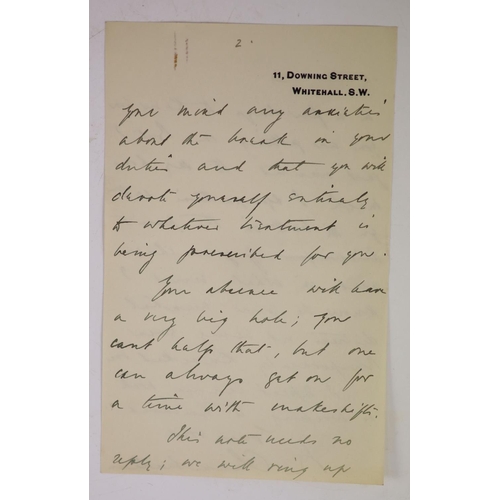 2.
11, Downing Street,
Whitehall. S.W.
your mind any anxieties
about the break in your
duties and that you will
devote yourself entirely
to whatever treatment is
being prescribed for you.
Your absence will leave
a very big hole; you
cant help that, but one
can always get on for
a time with makeshifts.
This note needs no
reply; we will ring up